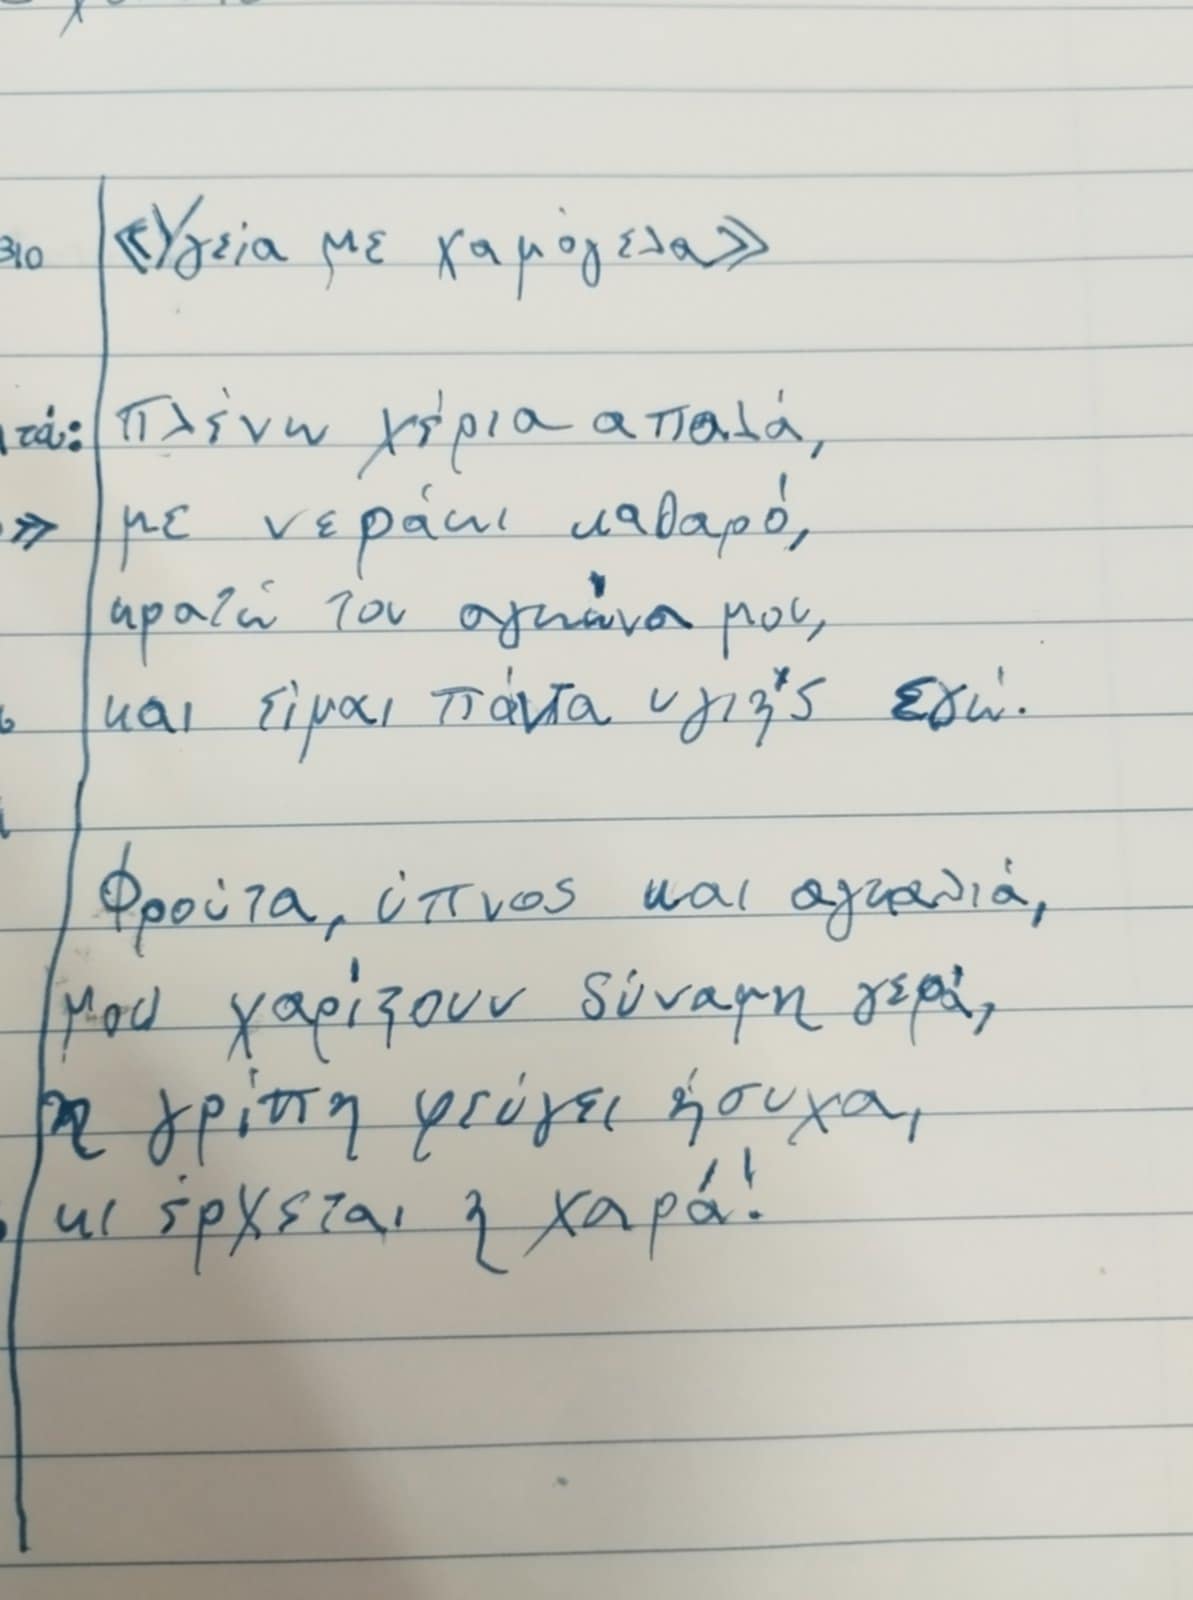 «Υγεία με χαμόγελα»
Πλένω χέρια απαλά,
με νεράκι καθαρό,
κρατώ τον αγκώνα μου,
και είμαι πάντα υγιής εγώ.
Φρούτα, ύπνος και αγκαλιά,
μου χαρίζουν δύναμη γερά,
η γρίπη φεύγει ήσυχα,
κι έρχεται η χαρά!